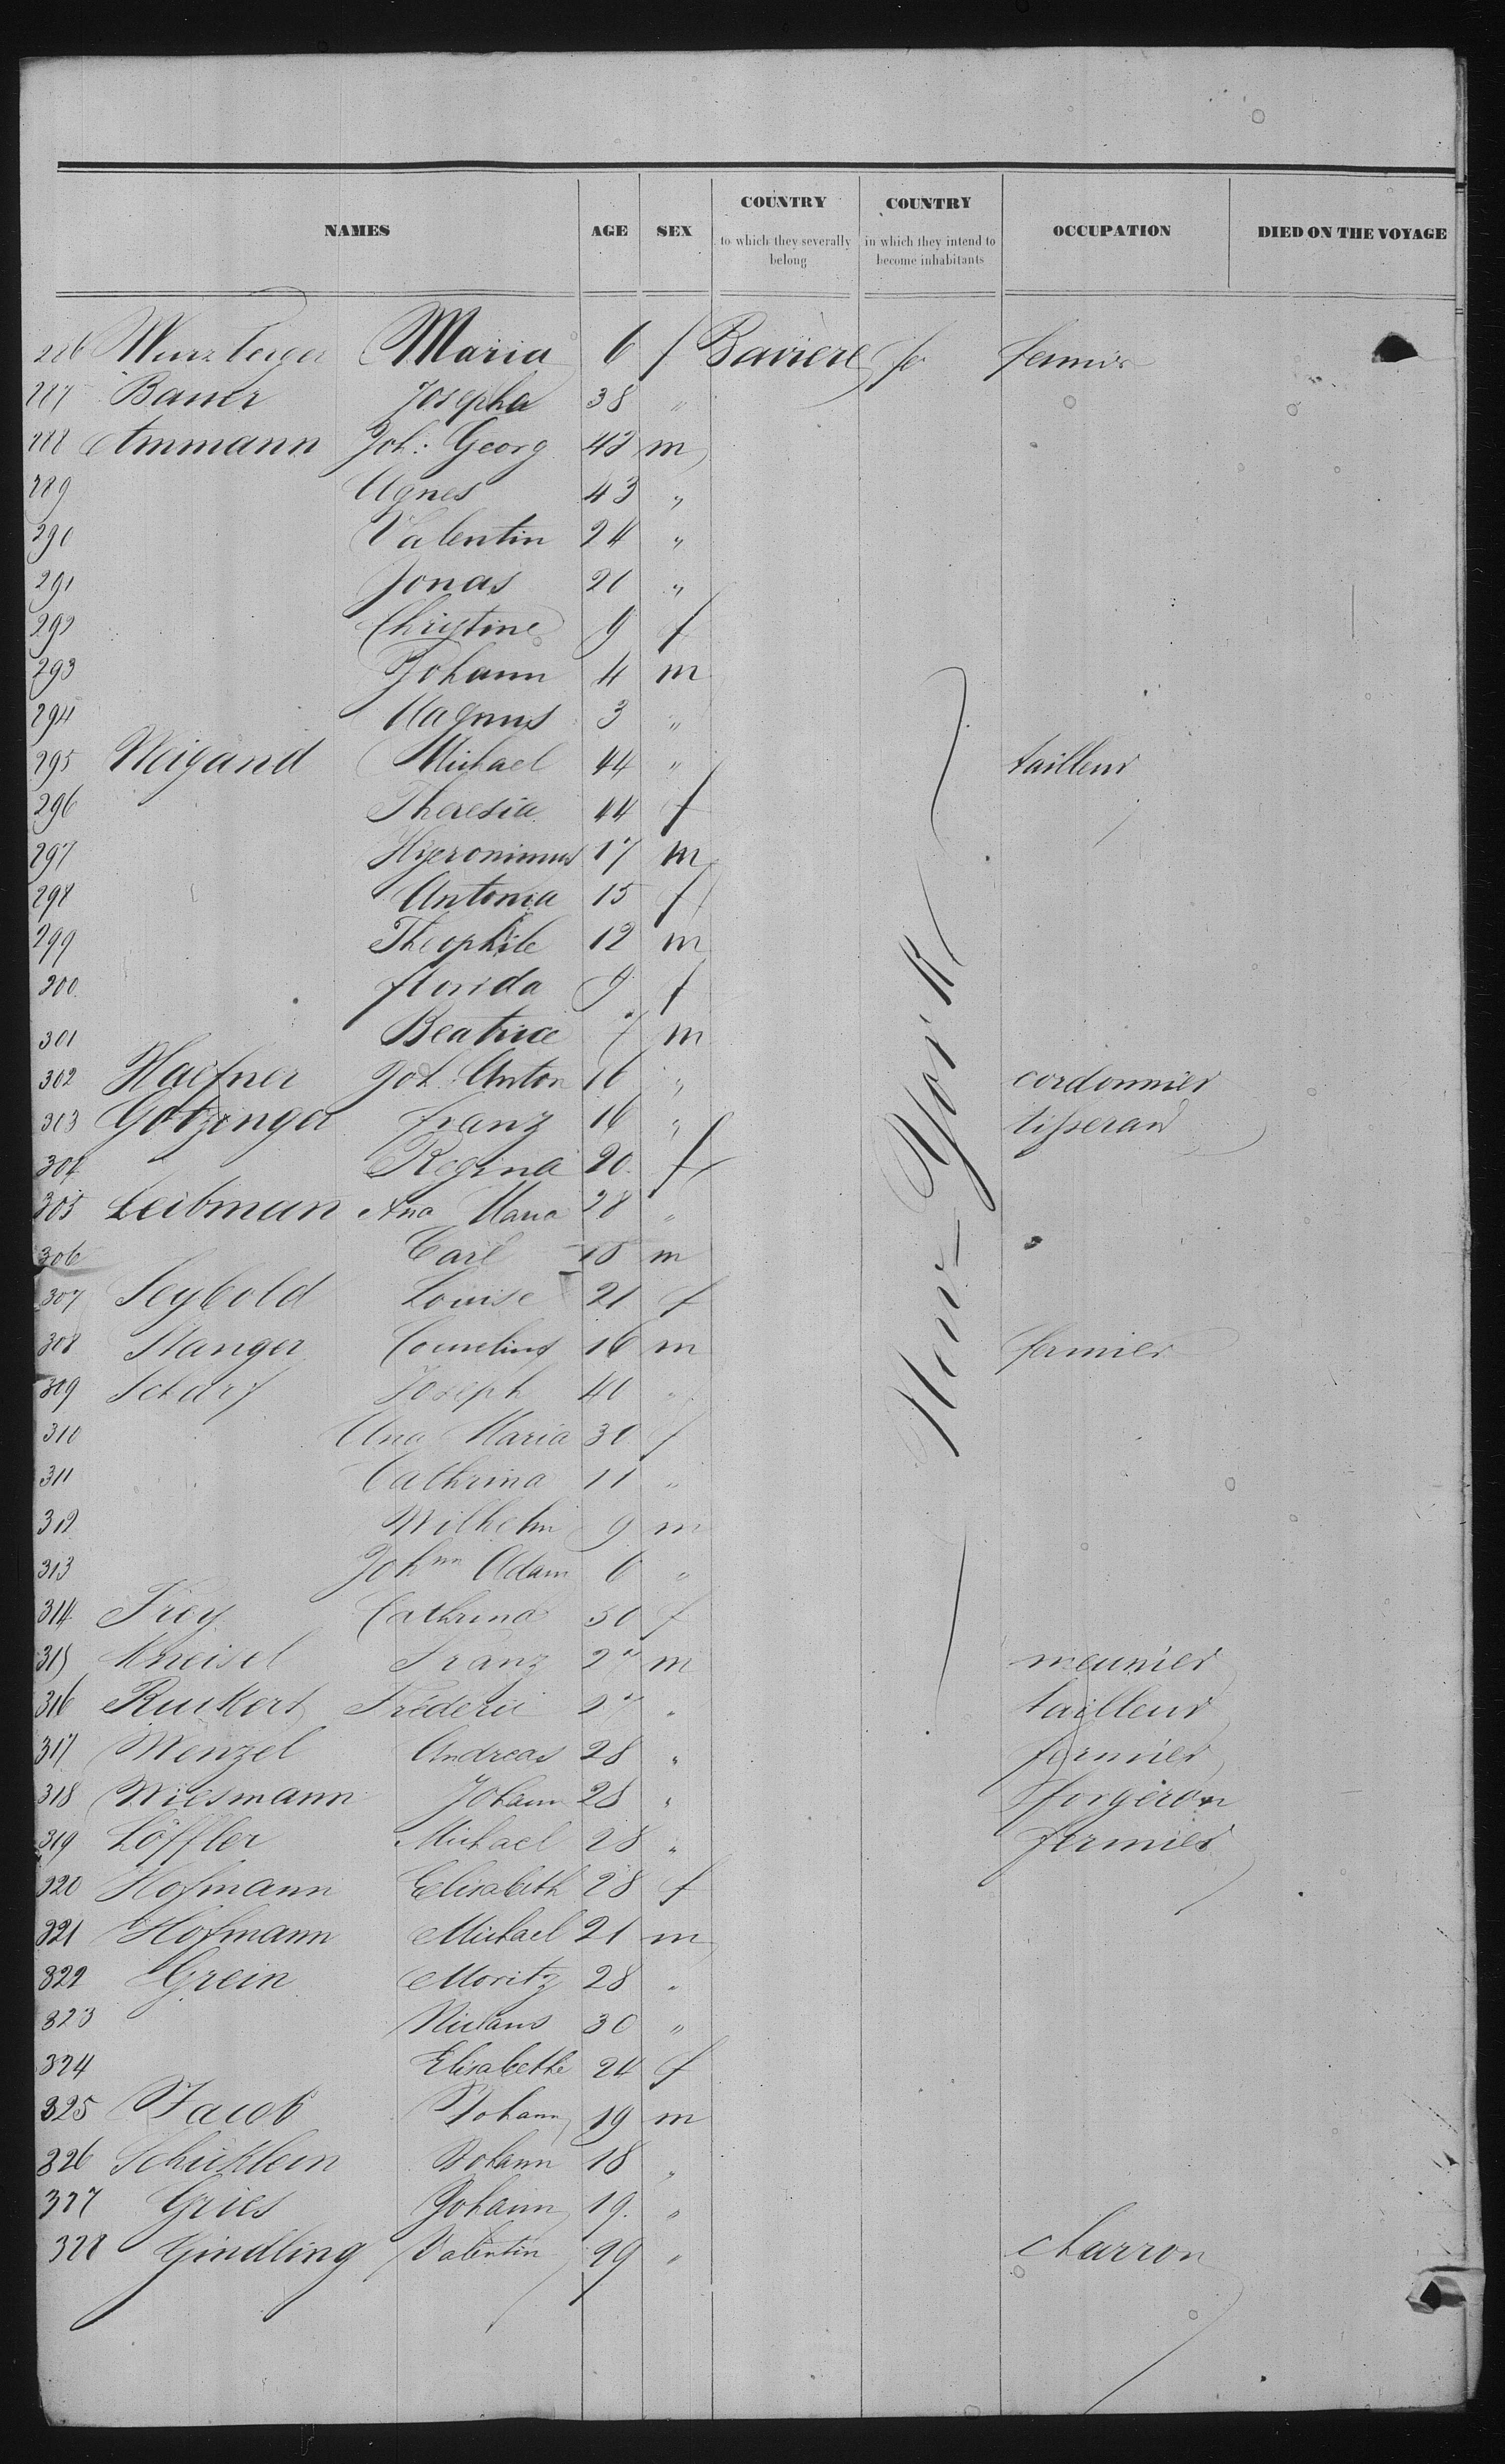 NAMES AGE SEX COUNTRY to which they severally belong COUNTRY in which they intend to become inhabitants OCCUPATION DIED ON THE VOYAGE
286 Wurzberger Maria 6 f Baviere fermier
287 Bauer Josepha 38 "
288 Ammann Joh: Georg 42 m
289 Agnes 43 "
290 Valentin 24 "
291 Jonas 20 "
292 Christine 9 f
293 Johann 4 m
294 Magnus 3 "
295 Weigand Michael 44 " tailleur
296 Theresia 44 f
297 Hyeronimus 17 m
298 Antonia 15 f
299 Theophile 12 m
200 florida 9 f
301 Beatrice 7 m
302 Haefner Joh: Anton 16 " cordonnier
303 Gotzinger franz 16 " tisserand
304 Regina 20 f
305 Leibman Ana Maria 28 "
306 Carl 15 m
307 Seybold Louise 21 f
308 Stanger Cournelius 16 m fermier
309 Scharf Joseph 40 "
310 Ana Maria 30 f
311 Cathrina 11 "
312 Wilhelm 9 m
313 Joh.nn Adam 6 "
314 Frey Cathrina 50 f
315 Kneisel Franz 27 m meunier
316 Ruckert Fréderic 27 " tailleur
317 Wenzel Andreas 28 " fermier
318 Wiesmann Johann 28 " forgeron
319 Löffler Michael 28 " fermier
320 Hofmann Elisabeth 28 f
321 Hofmann Michael 21 m
322 Grein Moritz 28 "
323 Niclaus 30 "
324 Elisabethe 24 f
325 Jacob Johann 19 m
326 Schicklein Johann 18 "
327 Gries Johann 19. "
328 Gindling Valentin 29 " charron
New-York